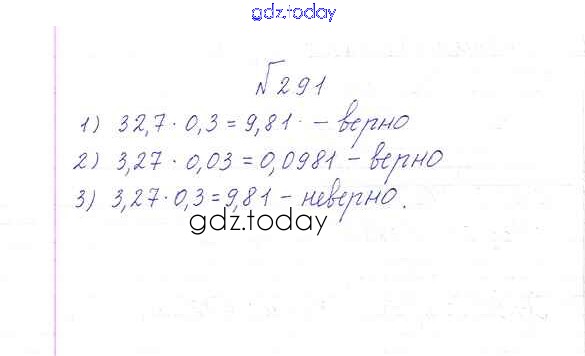 gdz.today
№ 291
1) 32,7 · 0,3 = 9,81 - верно
2) 3,27 · 0,03 = 0,0981 - верно
3) 3,27 · 0,3 = 9,81 - неверно.
gdz.today